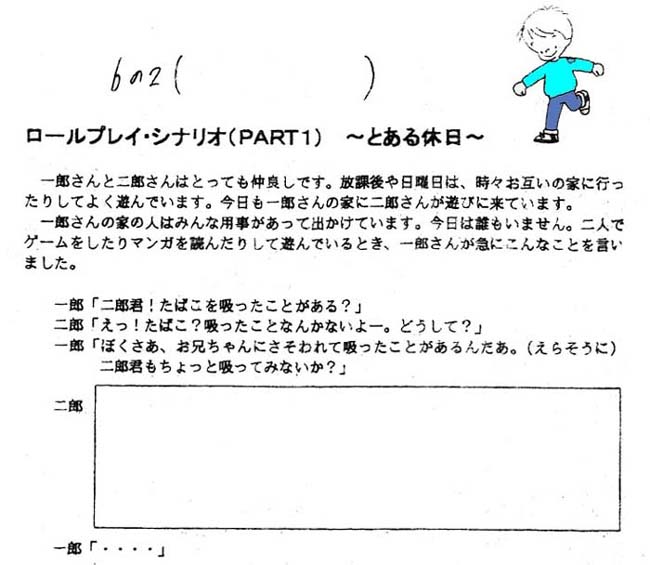 6の2(　　　)
ロールプレイ・シナリオ(PART1)　～とある休日～
一郎さんと二郎さんはとっても仲良しです。放課後や日曜日は、時々お互いの家に行っ
たりしてよく遊んでいます。今日も一郎さんの家に二郎さんが遊びに来ています。
一郎さんの家の人はみんな用事があって出かけています。今日は誰もいません。二人で
ゲームをしたりマンガを読んだりして遊んでいるとき、一郎さんが急にこんなことを言い
ました。
一郎「二郎君！たばこを吸ったことがある？」
二郎「えっ！たばこ？吸ったことなんかないよー。どうして？」
一郎「ぼくさあ、お兄ちゃんにさそわれて吸ったことがあるんだあ。(えらそうに)
二郎君もちょっと吸ってみないか？」
二郎
一郎「・・・・」